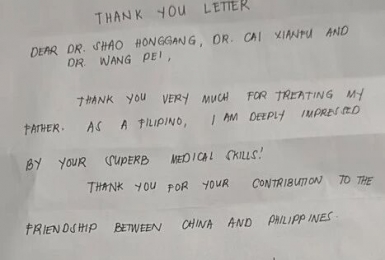 THANK YOU LETTER
DEAR DR. SHAO HONGGANG, DR. CAI XIANFU AND
DR. WANG PEI,
THANK YOU VERY MUCH FOR TREATING MY
FATHER. AS A FILIPINO, I AM DEEPLY IMPRESSED
BY YOUR SUPERB MEDICAL SKILLS!
THANK YOU FOR YOUR CONTRIBUTION TO THE
FRIENDSHIP BETWEEN CHINA AND PHILIPPINES.